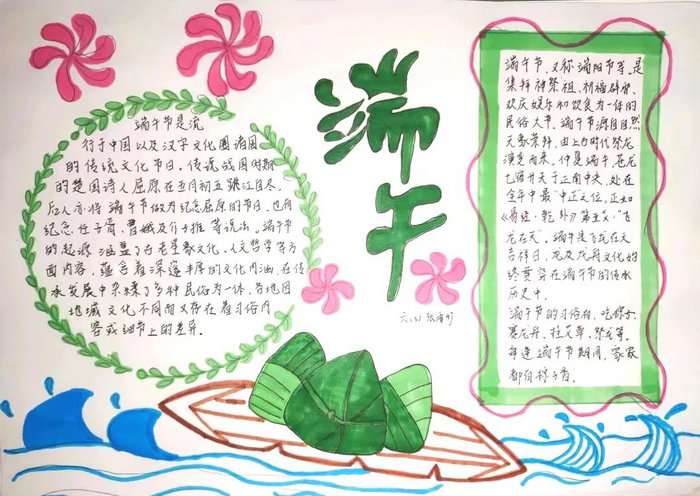 端午
端午节是流
行于中国以及汉字文化圈诸国
的传统文化节日，传说战国时期
的楚国诗人屈原在五月初五跳江自尽，
后人亦将端午节做为纪念屈原的节日，也有
纪念伍子胥，曹娥及介子推等说法，端午节
的起源涵盖了古老星象文化、人文哲学等方
面内容，蕴含着深邃丰厚的文化内涵，在传
承发展中杂糅了多种民俗为一体，各地因
地域文化不同而又存在着习俗内
容或细节上的差异。
端午节，又称端阳节等，是
集拜神祭祖、祈福辟邪、
欢庆娱乐和饮食为一体的
民俗大节，端午节源自自然
天象崇拜，由上古时代祭龙
演变而来。仲夏端午，苍龙
七宿升于正南中央，处在
全年中最“中正”之位，正如
《易经·乾卦》第五爻：“飞
龙在天”。端午是飞龙在天
吉祥日，龙及龙舟文化始
终贯穿在端午节的传承
历史中。
端午节的习俗有，吃粽子、
赛龙舟、挂艾草、祭龙等。
每逢端午节期间，家家
都有粽子香。